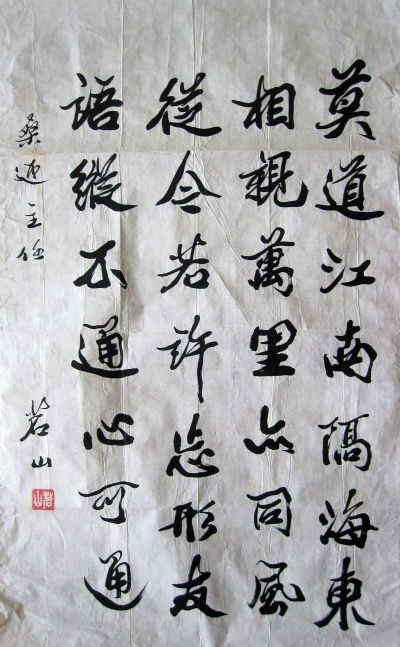 莫道江南隔海東
相親萬里亦同風
從今若許忘形友
語縱不通心可通
桑逈主任
茗山
茗山